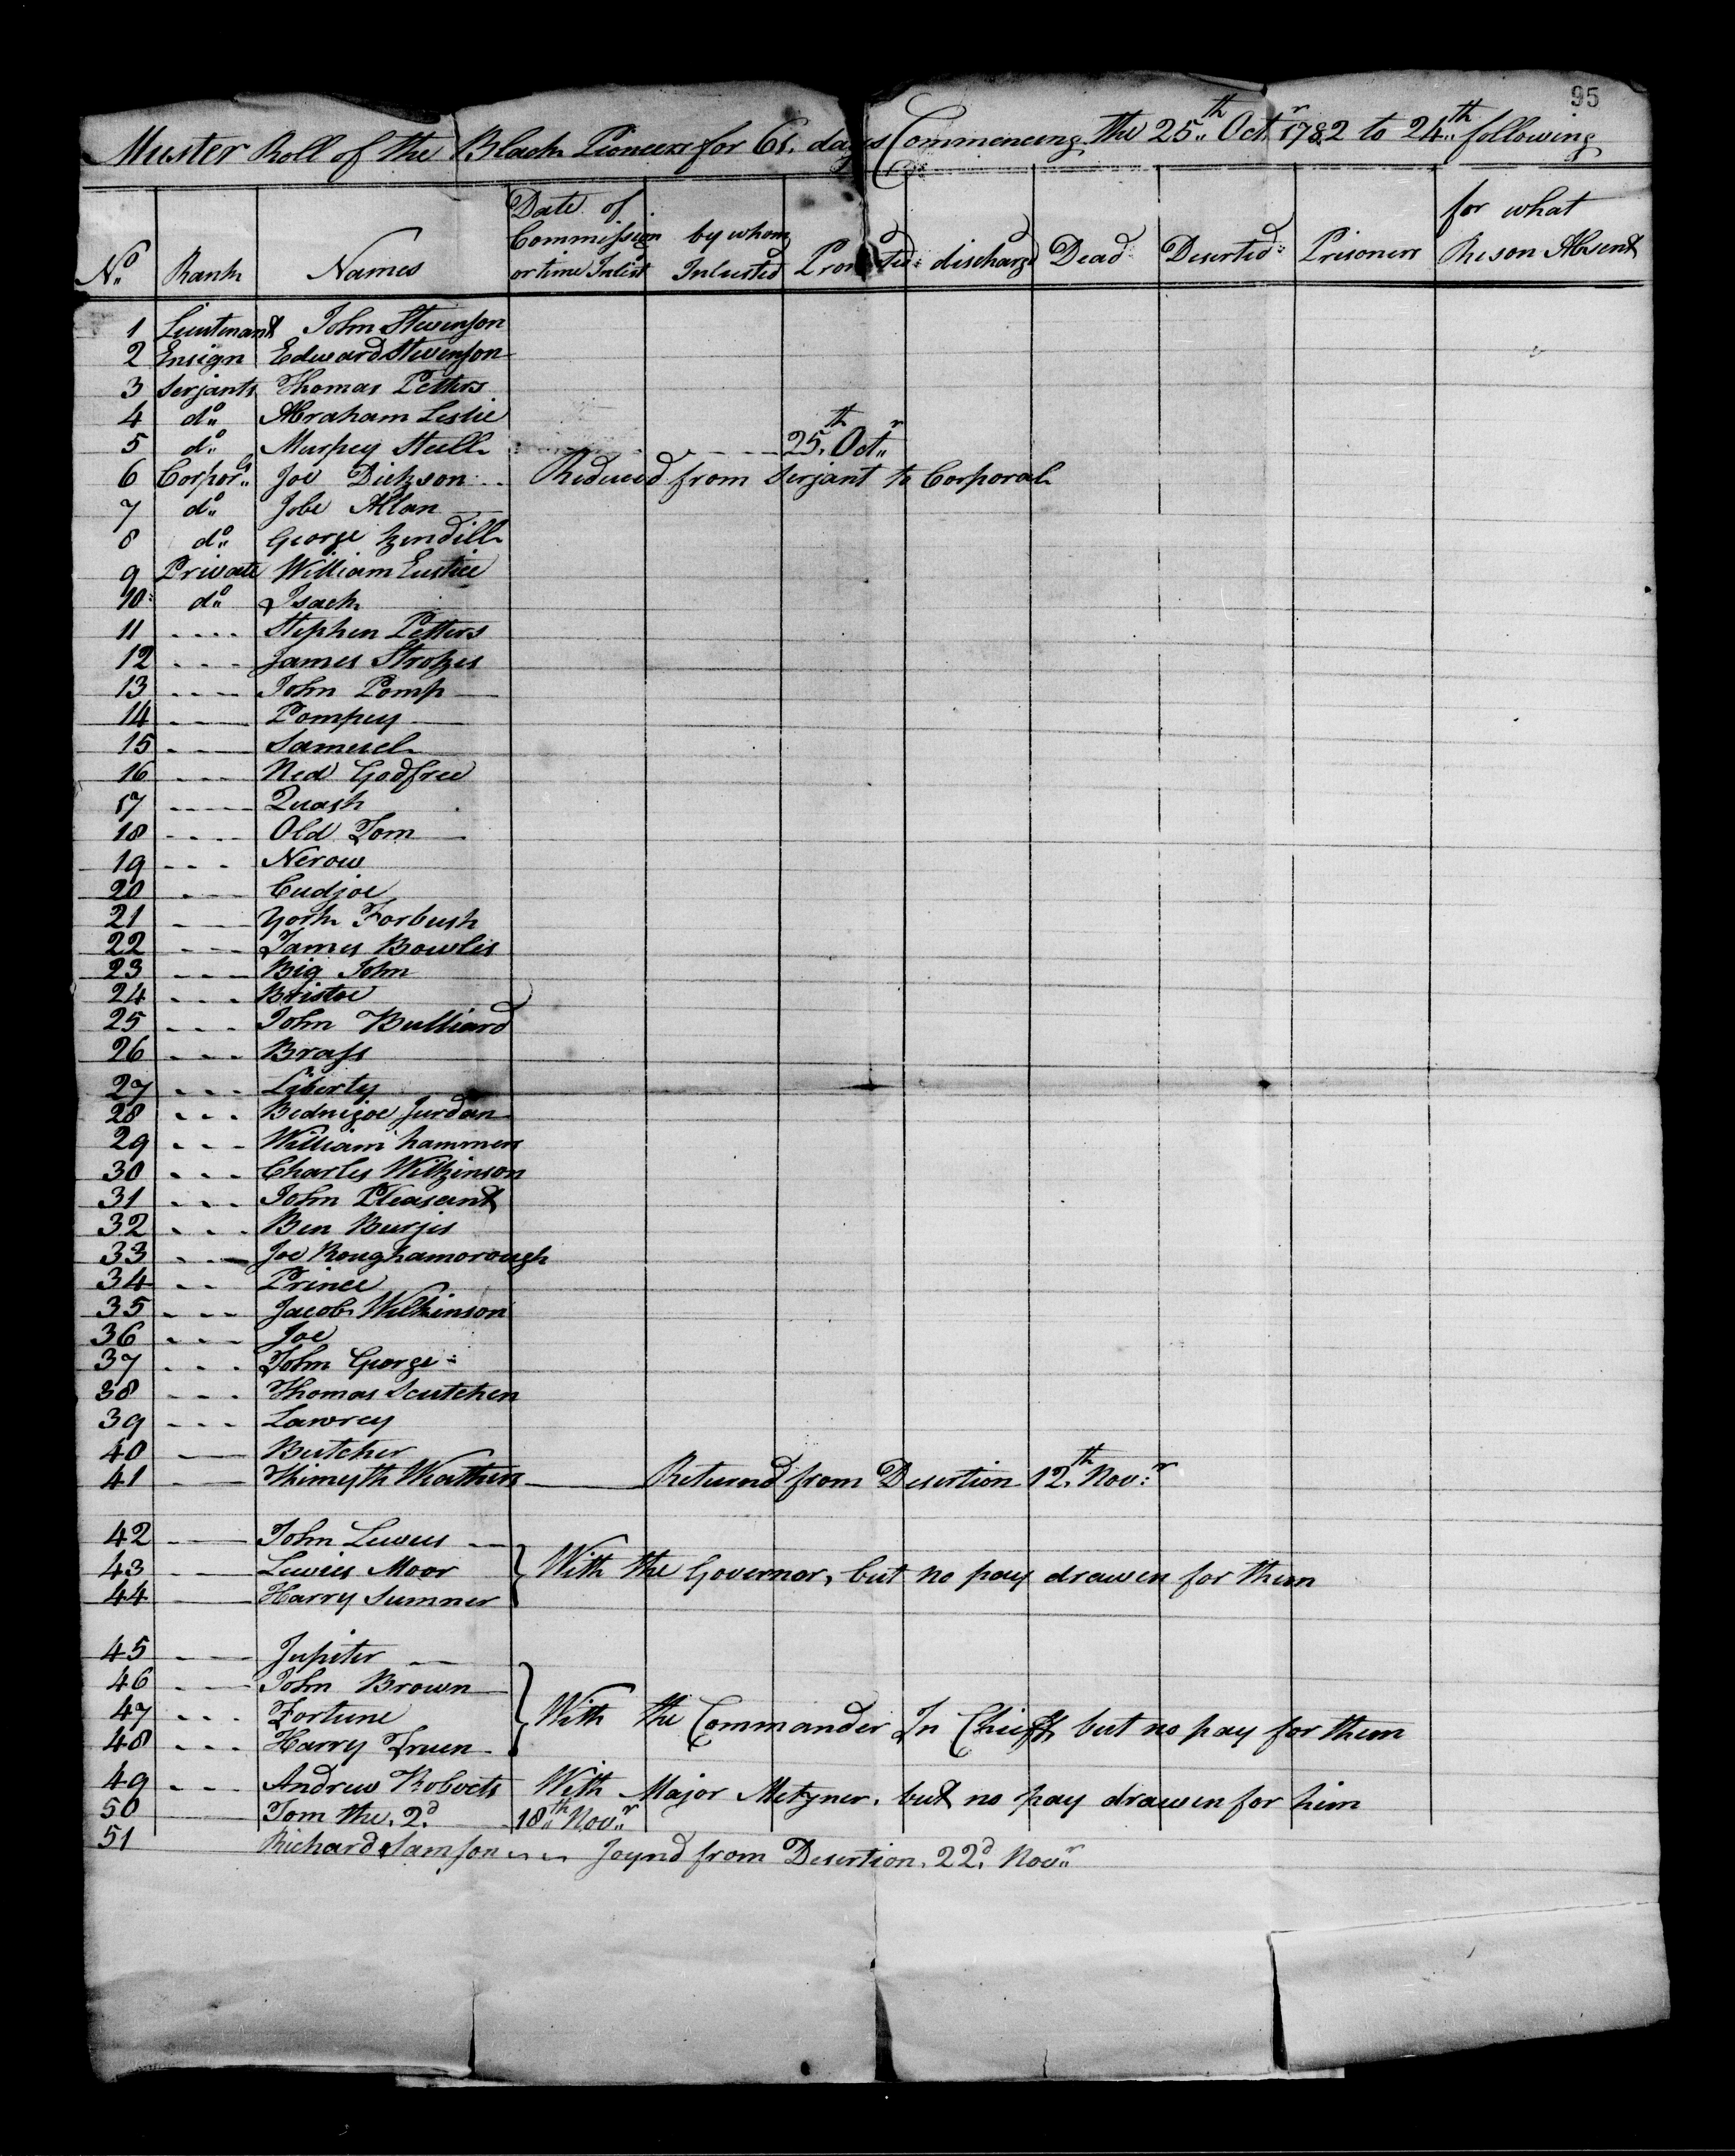 95
Muster Roll of the Black Pioneers for 61. days Commencing the 25th Octr 1782 to 24th following
No Rank Names Date of Commission or time Inlist by whom Inlisted Promoted discharge Dead Deserted Prisoners for what Reson Absent
1 Lieutenant John Stevenson
2 Ensign Edward Stevenson
3 Serjants Thomas Petters
4 do Abraham Leslie
5 do Murpey Steell 25th Octr
6 Corporls Joe Dickson Reduced from Serjant to Corporal
7 do Jobe Allan
8 do George kendill
9 Private William Eustice
10 do Isack
11 Stephen Petters
12 James Strokes
13 John Pomp
14 Pompey
15 Samuel
16 Ned Godfree
17 Quash
18 Old Tom
19 Nerow
20 Cudjoe
21 York Forbush
22 James Bowles
23 Big John
24 Bristoe
25 John Bulliard
26 Brass
27 Liberty
28 Bednigoe Jurdan
29 William hammers
30 Charles Wilkinson
31 John Pleasant
32 Ben Burjis
33 Joe Roughamorough
34 Prince
35 Jacob Wilkinson
36 Joe
37 John George
38 Thomas Scutchen
39 Lawrey
40 Butcher
41 Thimyth Weathers Returnd from Desertion 12th Novr
42 John Lewus
43 Lewies Moor With the Governor, but no pay drawen for them
44 Harry Sumner
45 Jupiter
46 John Brown
47 Fortune With the Commander In Chieff, but no pay for them
48 Harry Truen
49 Andrew Roberts With Major Metzner, but no pay drawen for him
50 Tom the 2d 18th Novr
51 Richard Samson Joynd from Desertion 22d Novr